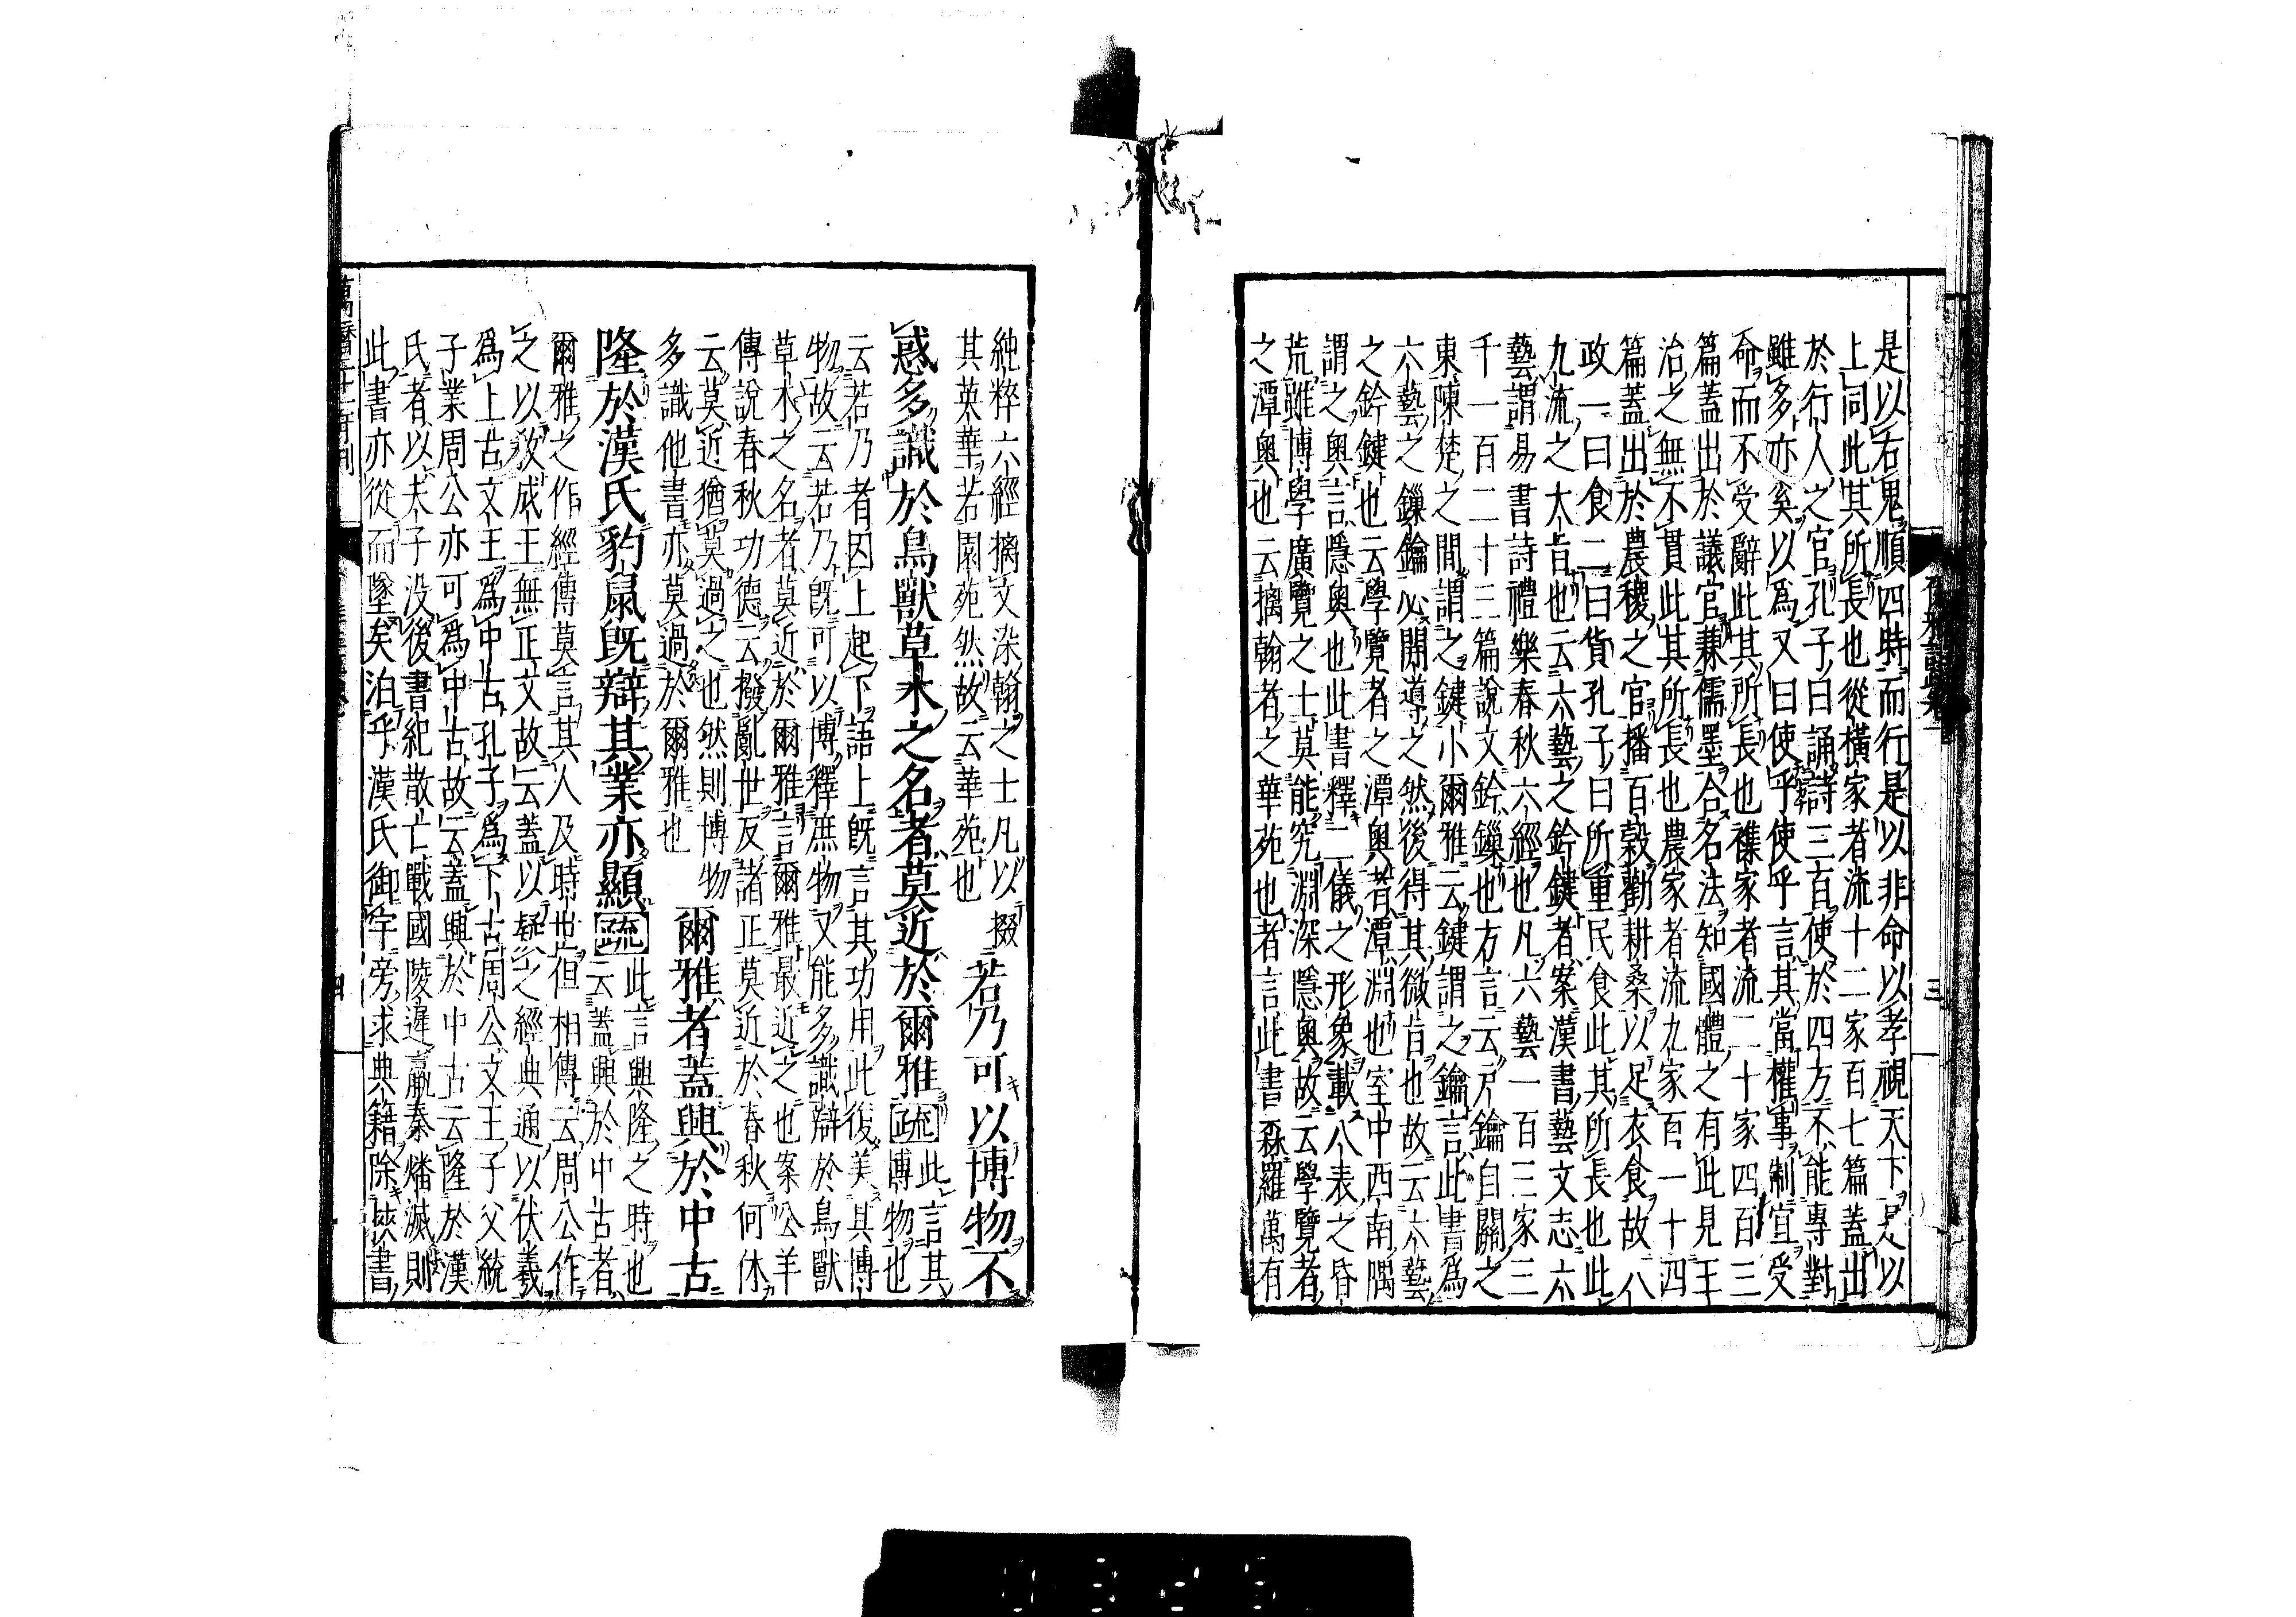 爾雅疏卷一
三
是以右鬼順四時而行是以非命以孝視天下是以
上同此其所長也從橫家者流十二家百七篇蓋出
於行人之官孔子曰誦詩三百使於四方不能專對
雖多亦奚以爲又曰使乎使乎言其當權事制宜受
命而不受辭此其所長也襍家者流二十家四百三
篇蓋出於議官兼儒墨合名法知國體之有此見王
治之無不貫此其所長也農家者流九家百一十四
篇蓋出於農稷之官播百穀勸耕桑以足衣食故八
政一曰食二曰貨孔子曰所重民食此其所長也此
九流之大旨也云六藝之鈐鍵者案漢書藝文志六
藝謂易書詩禮樂春秋六經也凡六藝一百三家三
千一百二十三篇說文鈐鏁也方言云戶鑰自關之
東陳楚之間謂之鍵小爾雅云鍵謂之鑰言此書爲
六藝之鏁鑰必開導之然後得其微旨也故云六藝
之鈐鍵也云學覽者之潭奧者潭淵也室中西南隅
謂之奧言隱奧也此書釋二儀之形象載八表之昏
荒雖博學廣覽之士莫能究淵深隱奧故云學覽者
之潭奧也云摛翰者之華苑也者言此書森羅萬有
純粹六經摛文染翰之士凡以掇
其英華若園苑然故云華苑也
若乃可以博物不
惑多識於鳥獸草木之名者莫近於爾雅疏
此言其
博物也
云若乃者因上起下語上旣言其功用此復美其博
物故云若乃旣可以博釋庶物又能多識辯於鳥獸
草木之名者莫近於爾雅言爾雅最近之也案公羊
傳說春秋功德云撥亂世反諸正莫近於春秋何休
云莫近猶莫過之也然則博物
多識他書亦莫過於爾雅也
爾雅者蓋興於中古
隆於漢氏豹鼠旣辯其業亦顯疏
此言興隆之時也
云蓋興於中古者
爾雅之作經傳莫言其人及時世但相傳云周公作
之以敎成王無正文故云蓋以疑之經典通以伏羲
爲上古文王爲中古孔子爲下古周公文王子父統
子業周公亦可爲中古故云蓋興於中古云隆於漢
氏者以夫子没後書紀散亡戰國陵遲嬴秦燔滅則
此書亦從而墜矣洎乎漢氏御宇旁求典籍除挾書
萬曆二十一年刊
四